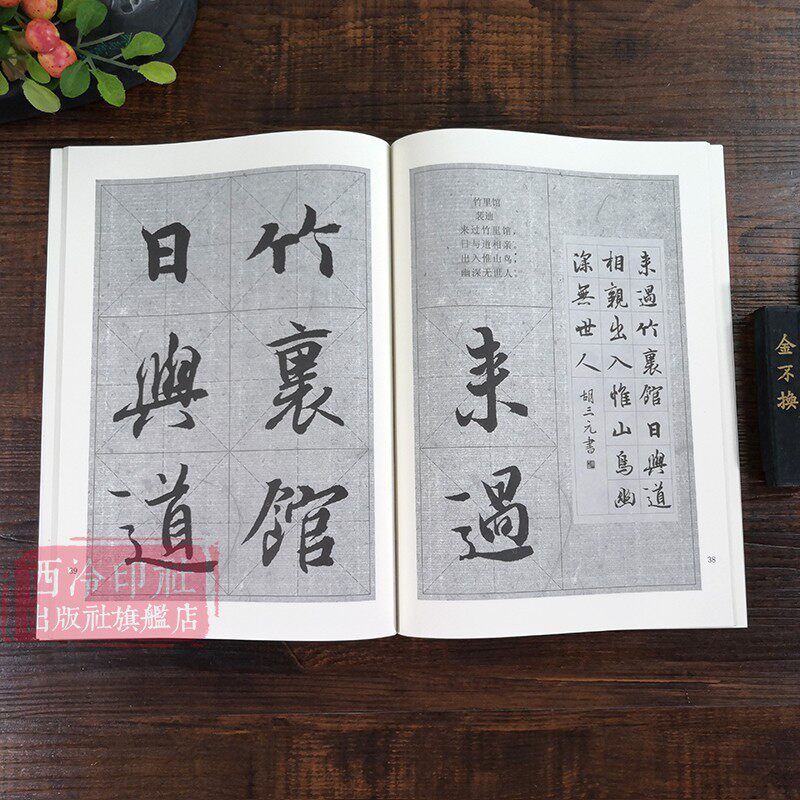 竹里馆
裴迪
来过竹里馆，
日与道相亲。
出入惟山鸟，
幽深无世人。
来過竹裏館日與道
相親出入惟山鳥幽
深無世人
胡三元書
来過
38
竹裏館
日與道
39
金不換
西泠印社
出版社旗艦店